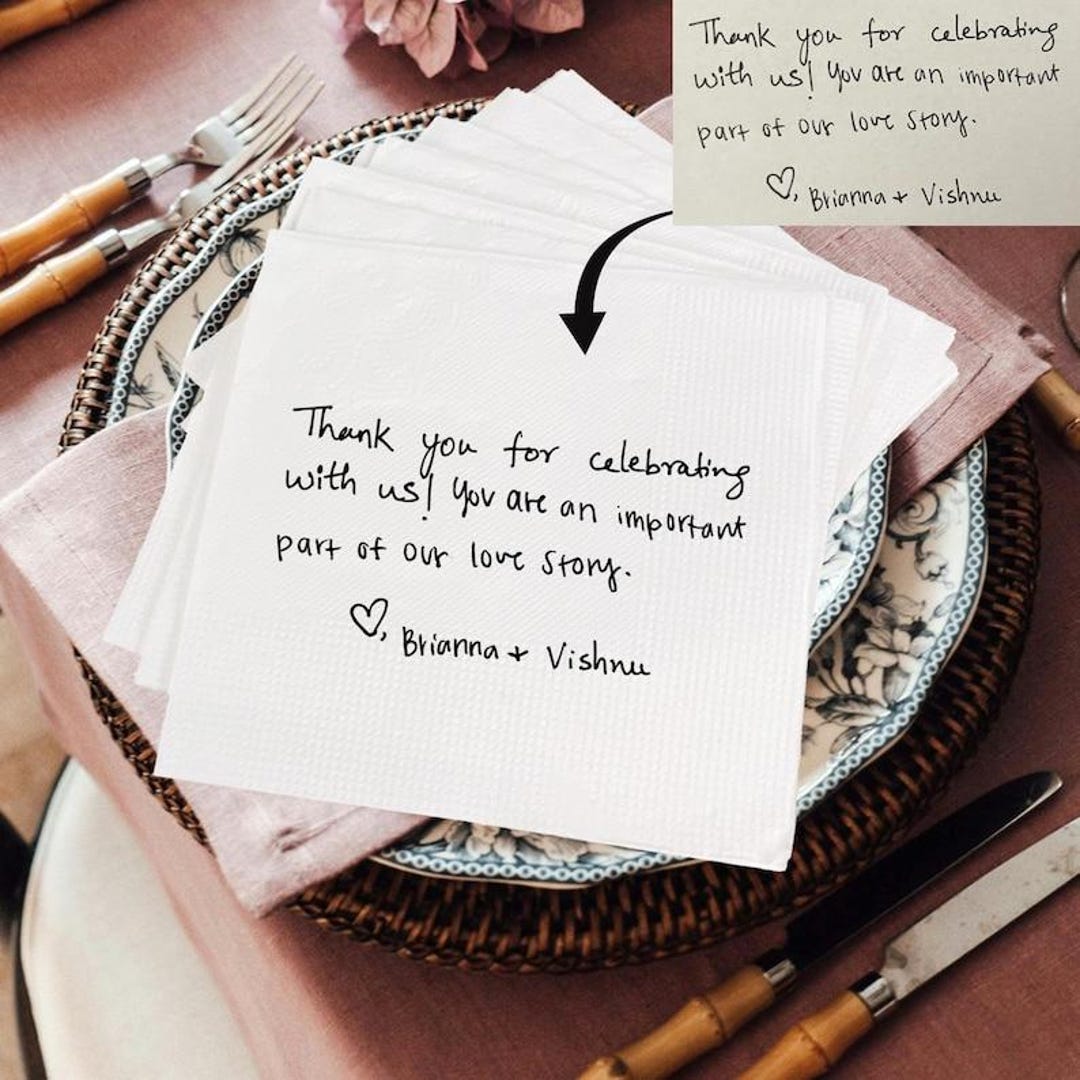 Thank you for celebrating
with us! You are an important
part of our love story.
♡, Brianna + Vishnu
Thank you for celebrating
with us! You are an important
part of our love story.
♡, Brianna + Vishnu